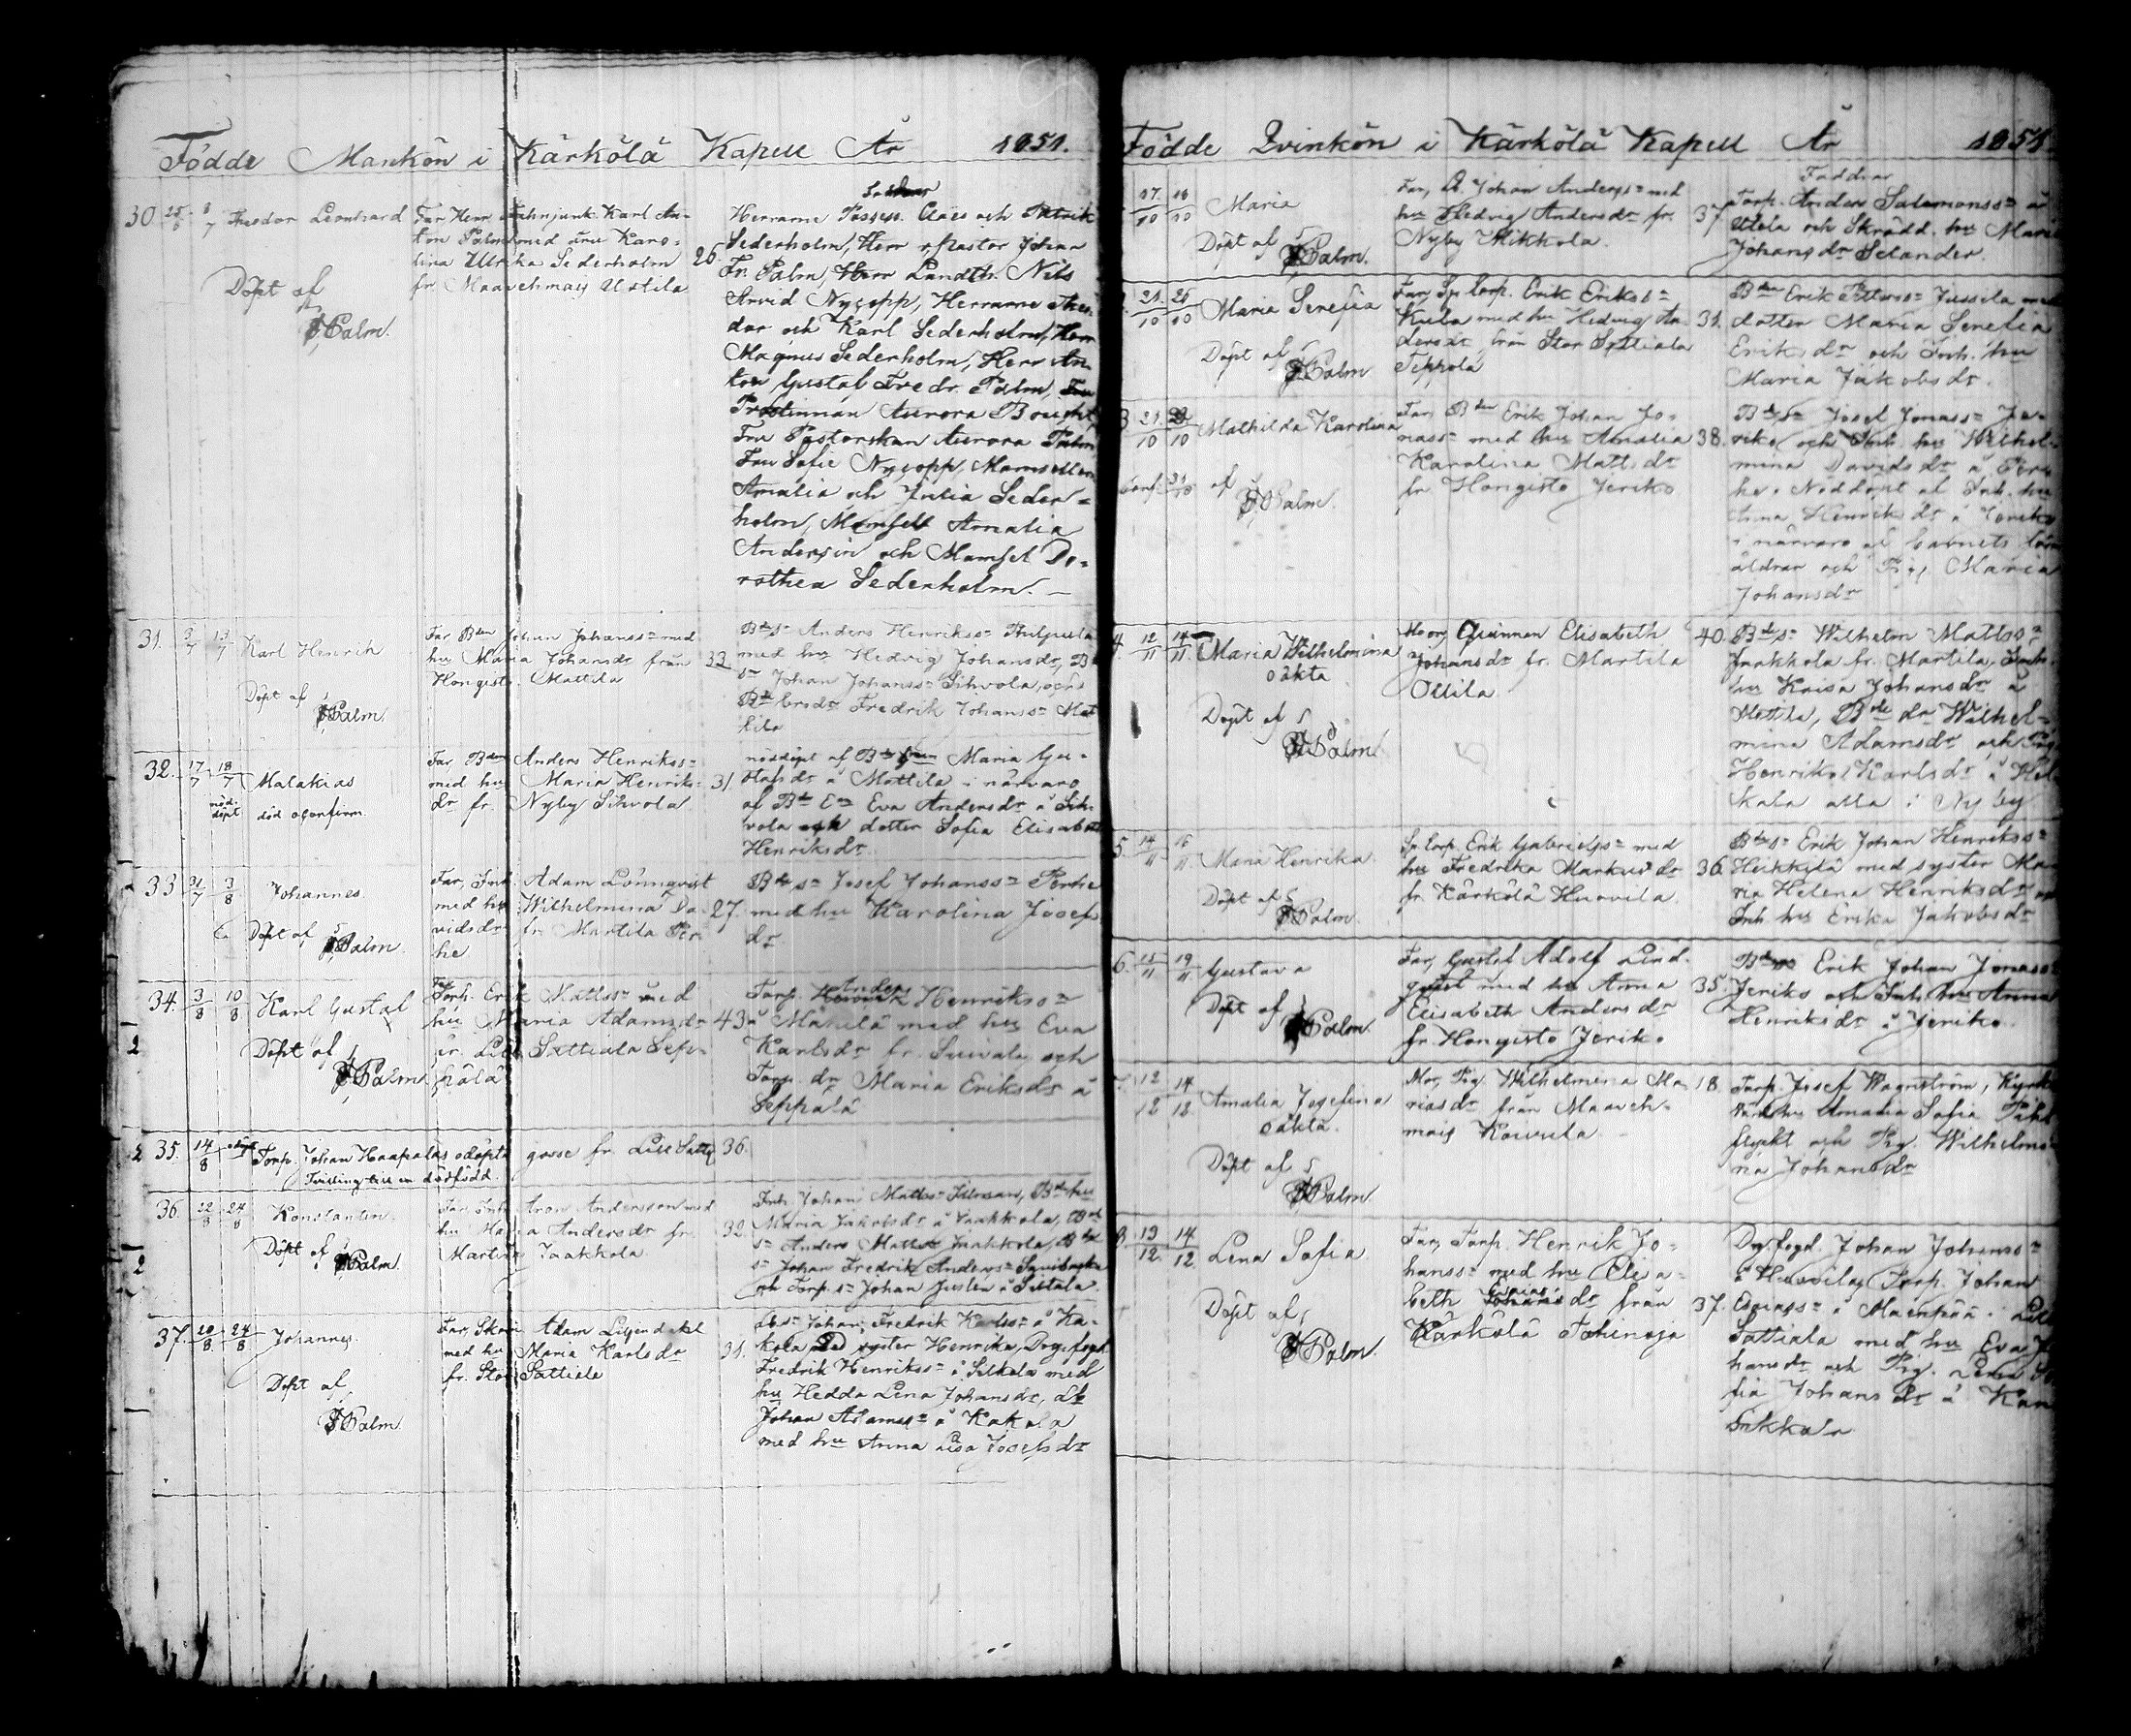 Födde Mankön i Kärkölä Kapell År 1851.
30 25/6 8/7 Theodor Leonhard
Döpt af
Palm.
Far Herr Fahnjunk. Karl An-
ton Palm med fru Karo-
lina Ullrika Sederholm
fr. Maavehmais Ustila
26.
Herrarne Possess. Claes och Patrik
Sederholm, Herr Pastor Johan
Fr. Palm, Herr Landth. Nils
Arvid Nycopp, Herrarne Theo-
dor och Karl Sederholm, Herr
Magnus Sederholm, Herr An-
ton Gustaf Fredr. Palm, Fru
Prostinnan Aurora Bought,
Fru Pastorskan Aurora Palm,
Fru Sofie Nycopp, Mamseller
Amalia och Julia Seder-
holm, Mamsell Amalia
Andersin och Mamsel Do-
rothea Sederholm. —
31. 3/7 13/7 Karl Henrik
Döpt af
Palm
Far Bden Johan Johanss=n med
hu Maria Johansdr från
Hongisto Mattila
33.
Bds=n Anders Henrikss=n
med hu Hedvig Johansdr, B
s=n Johan Johanss=n Sihvola, och
Fredrik Johanss=n Mat
tila
32. 17/7 18/7 Malakias
nöd-
döpt död oconfirm.
Far Bden Anders Henrikss=n
med hu Maria Henriks-
dr fr. Nyby Sihvola
31.
nöddöpt af Maria Gu-
stafsdr å Mattila i närvaro
af Eva Andersdr å Sih-
vola och dotter Sofia Elisabet
Henriksdr.
33 31/7 3/8 Johannes
Döpt af
Palm
Far, Inh. Adam Lönnqvist
med hu Wilhelmina Da-
vidsdr fr. Martila Per
he
27.
Bds=n Josef Johanss=n Perhe
med hu Karolina Josef
dr
34. 3/8 10/8 Karl Gustaf
Döpt af
Palm
Far
Torp. Erik Matts=n med
hu Maria Adamsdr
fr. Lill Sattiala Sep-
pälä
43
Anders
Torp. Henrikss=n
å Mäkelä med hu Eva
Karlsdr fr. och
Torp. dr Maria Eriksdr å
Seppälä
2 35. 14/8 Torp. Johan Haapalas odöpta gosse fr. Lill Satti. 36.
Tvilling till en dödfödd.
36. 22/8 24/8 Konstantin
Döpt af
Palm.
Far Inh. Aron Andersson med
hu Maria Andersdr fr.
Martila Jaakkola
32.
Inh. Johan Matts=n
Maria Jakobsdr å Jaakkola,
s=n Anders Jaakkola,
s=n Johan Fredrik Anderss=n
och Torp. s=n Johan Justen å
37. 20/8 24/8 Johannes
Döpt af
Palm.
Far, Adam Liljendahl
med hu Maria Karlsdr
fr. Stor Sattiala
31.
Johan Fredrik Karlss=n å Ka-
kola syster Henrika, Dryg. fogd.
Fredrik Henrikss=n å Silkela med
hu Hedda Lena Johansdr,
Johan Adamss=n å Kakola
med hu Anna Lisa Josefsdr
Födde Qvinkön i Kärkölä Kapell År 1851
Faddrar
07/10 10/10 Maria
Döpt af
Palm.
Far, Johan Anderss=n med
hu Hedvig Andersdr fr.
Nyby Mikkola.
37
Torp. Anders Salomonss=n å
Utola och Skrädd. hu Maria
Johansdr Selander.
21/10 25/10 Maria Serefia
Döpt af
Palm
Far, Sp torp. Erik Erikss=n
med hu Hedvig An-
dersdr från Stor Sattiala
Teppola
31.
Bden Erik Petterss=n Jussila med
dotter Maria Serefia
Eriksdr och Inh. hu
Maria Jakobsdr.
21/10 10 Mathilda Karolina
Conf. af
Palm.
Far, Bden Erik Johan Jo-
nass=n med hu Amalia
Karolina Mattsdr
fr. Hongisto Jeriko
38.
Bds=n Josef Jonass=n Je-
riko och Inh. hu Wilhel-
mina Davidsdr å Per-
he. Nöddöpt af Inh. hu
Anna Henriksdr å Jeriko
i närvaro af barnets för-
äldrar och Pig. Maria
Johansdr
4. 12/11 14/11 Maria Wilhelmina
oäkta
Döpt af
Palm
Moor Qvinnan Elisabeth
Johansdr fr. Martila
Ollila
40.
Bds=n Wilhelm Matts=n
Jaakkola fr. Martila, Inh.
hu Kaisa Johansdr å
Mattila, dr Wilhel-
mina Adamsdr och Pig.
Henrika Karlsdr å
alla i Nyby
5. 14/11 16/11 Maria Henrika
Döpt af
Palm.
Sp torp. Erik Gabrielss=n med
hu Fredrika Markusdr
fr. Kärkölä Huovila
36.
Bds=n Erik Johan Henrikss=n
Heikkilä med syster Ma-
ria Helena Henriksdr
Inh. hu Erika Jakobsdr
6. 15/11 19/11 Gustava
Döpt af
Palm.
Far, Gustaf Adolf Lind-
qvist med hu Anna
Elisabeth Andersdr
fr. Hongisto Jeriko
35.
Erik Johan Jonass=n
Jeriko och Inh. hu Anna
Henriksdr å Jeriko.
12/12 14/12 Amalia Josefina
oäkta.
Döpt af
Palm.
Mor, Pig. Wilhelmina Ma-
riasdr från Maaveh-
mais Kouvula
18.
Torp. Josef Wagnström, Kyrk
hu Amanda Sofia
och Pig. Wilhelmi-
na Johansdr
8. 13/12. 14/12. Lena Sofia
Döpt af
Palm.
Far, Torp. Henrik Jo-
hanss=n med hu Elisa-
beth Esaias dr från
Kärkölä Tohinoja
37.
Dryg. fogd. Johan Johanss=n
å Huovila, Torp. Johan
Esaiass=n å Maenpää. Lill
Sattiala med hu Eva Jo
hansdr och Pig. Lena So
fia Johansdr å Kan
sukkala